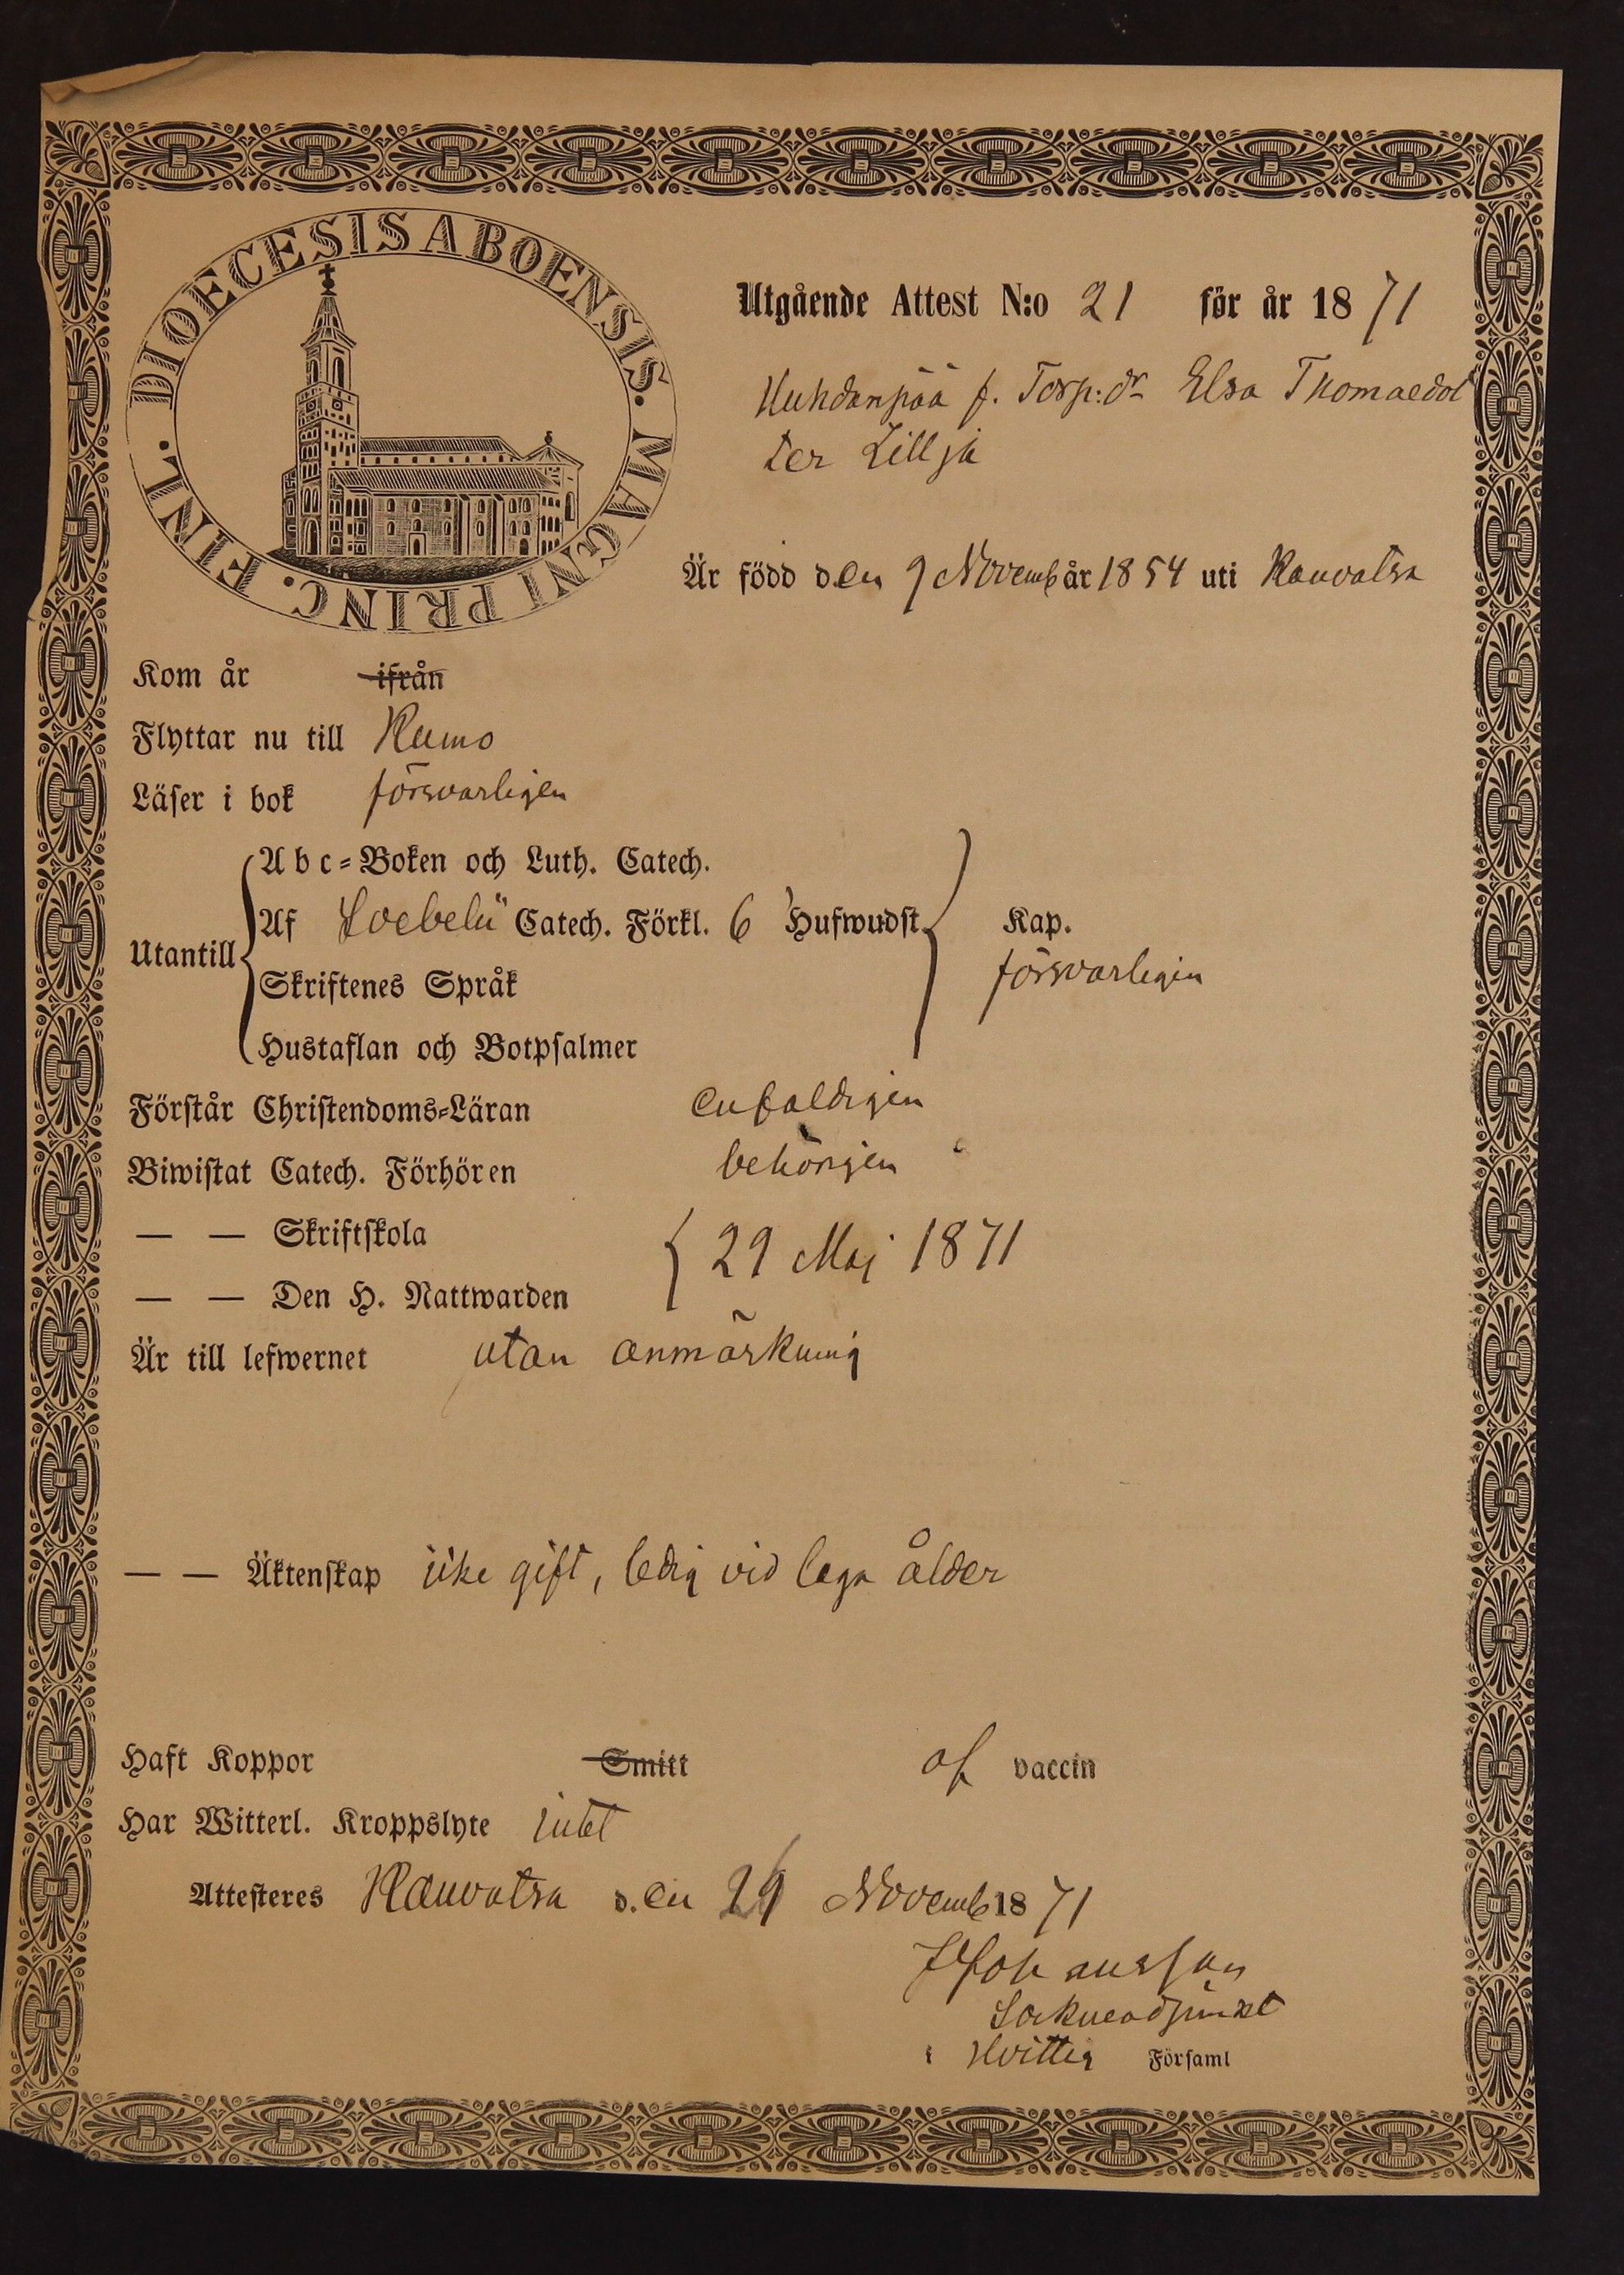 DIOECESIS ABOENSIS. MAGNI PRINC. FINL.
Utgående Attest N:o 21 för år 1871
Huhdanpää f. Torp:dr Elsa Thomaedot
ter Lillja
Är född den 9 Novemb år 1854 uti Kauvatsa
Kom år ifrån
Flyttar nu till Kumo
Läser i bok försvarligen
Utantill
Abc-Boken och Luth. Catech.
Af Svebelii Catech. Förkl. 6 Hufwudst. Kap.
Skriftenes Språk
försvarligen
Hustaflan och Botpsalmer
Förstår Christendoms-Läran enfaldigen
Biwistat Catech. Förhören behörigen
— — Skriftskola
29 Maj 1871
— — Den H. Nattwarden
Är till lefwernet utan anmärkning
— — Äktenskap icke gift, ledig vid laga ålder
Haft Koppor Smitt af vaccin
Har Witterl. Kroppslyte intet
Attesteres Kauvatsa d. en 29 Novemb 1871
Johansson
Sockneadjunkt
i Hvittis Församl